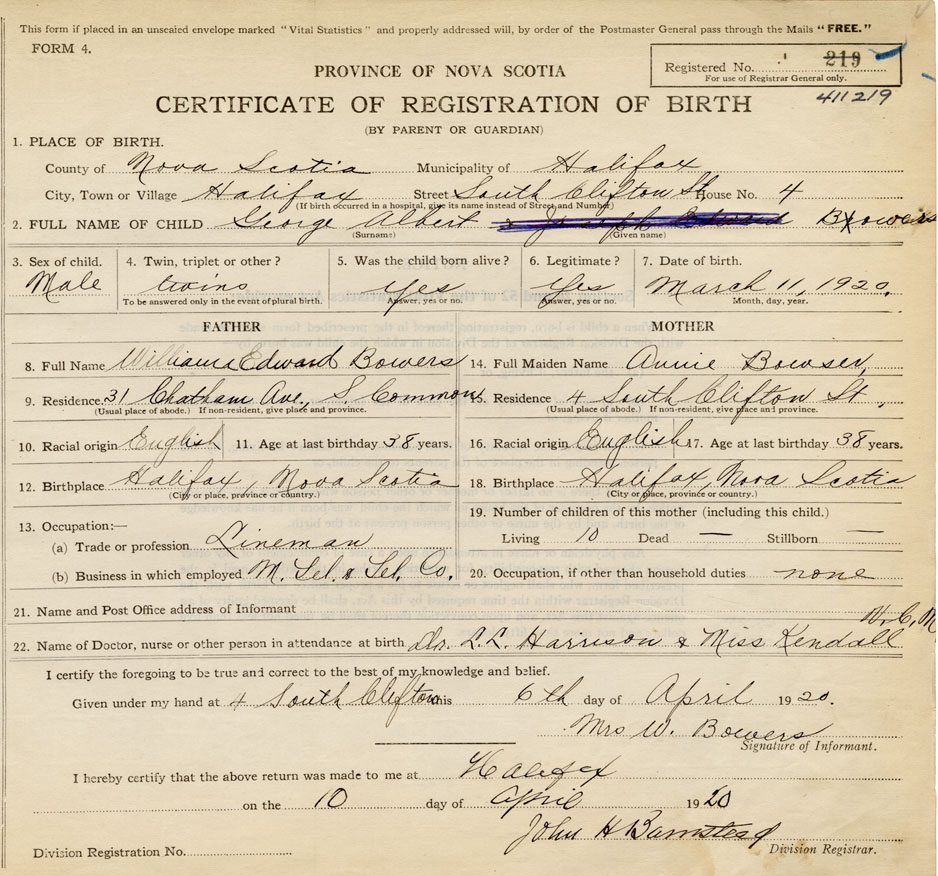 This form if placed in an unsealed envelope marked "Vital Statistics" and properly addressed will, by order of the Postmaster General pass through the Mails "FREE."
FORM 4.
Registered No. 219
For use of Registrar General only.
PROVINCE OF NOVA SCOTIA
411219
CERTIFICATE OF REGISTRATION OF BIRTH
(BY PARENT OR GUARDIAN)
1. PLACE OF BIRTH.
County of Nova Scotia Municipality of Halifax
City, Town or Village Halifax Street South Clifton St House No. 4
(If birth occurred in a hospital, give its name instead of Street and Number)
2. FULL NAME OF CHILD George Albert & Joseph Edward Bowers
(Surname) (Given name)
3. Sex of child. 4. Twin, triplet or other? 5. Was the child born alive? 6. Legitimate? 7. Date of birth.
Male twins yes yes March 11, 1920.
To be answered only in the event of plural birth. Answer, yes or no. Answer, yes or no. Month, day, year.
FATHER MOTHER
8. Full Name William Edward Bowers 14. Full Maiden Name Annie Bowser,
9. Residence. 31 Chatham Ave., S Common 15. Residence 4 South Clifton St,
(Usual place of abode.) If non-resident, give place and province. (Usual place of abode.) If non-resident, give place and province.
10. Racial origin English 11. Age at last birthday 38 years. 16. Racial origin English 17. Age at last birthday 38 years.
12. Birthplace Halifax, Nova Scotia 18. Birthplace Halifax, Nova Scotia
(City or place, province or country.) (City or place, province or country.)
13. Occupation:— 19. Number of children of this mother (including this child.)
(a) Trade or profession Lineman Living 10 Dead — Stillborn —
(b) Business in which employed M. Tel. & Tel. Co. 20. Occupation, if other than household duties none
21. Name and Post Office address of Informant
22. Name of Doctor, nurse or other person in attendance at birth Drs. L.L. Harrison & Miss Kendall
I certify the foregoing to be true and correct to the best of my knowledge and belief.
Given under my hand at 4 South Clifton this 6th day of April 1920.
Mrs W. Bowers
Signature of Informant.
I hereby certify that the above return was made to me at Halifax
on the 10 day of April 1920
John H Barnstead
Division Registrar.
Division Registration No.